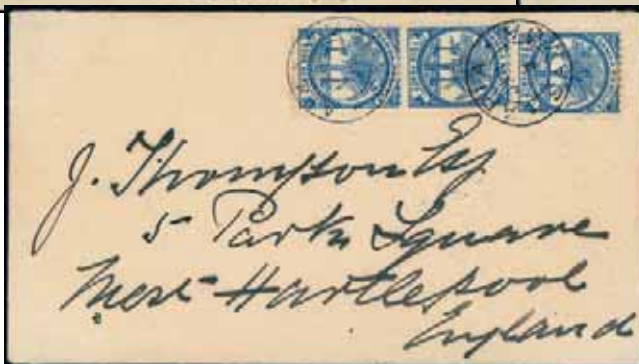 J. Thompson Esq
5 Park Square
West Hartlepool
England